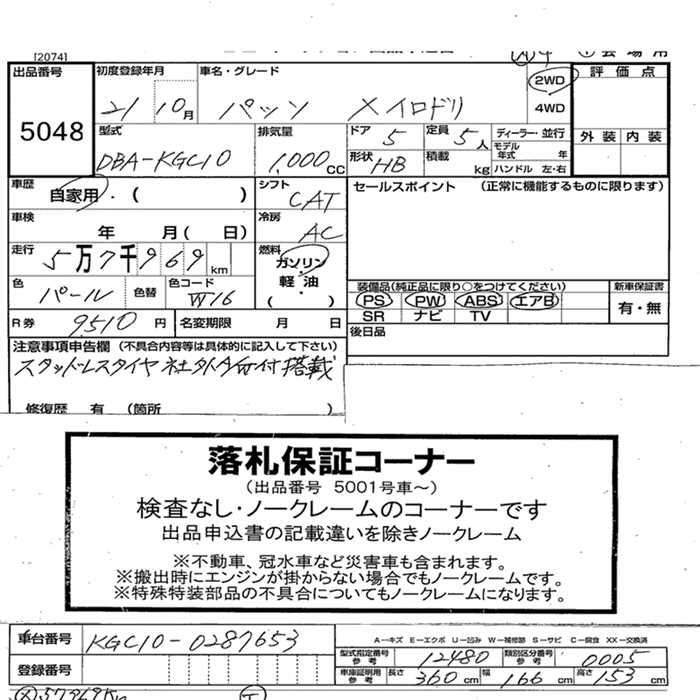 [2074]
出品番号 初度登録年月 車名・グレード 2WD 4WD 評価点
5048 21 10月 パッソ X イロドリ
型式 排気量 ドア 5 定員 5人 ディーラー・並行 外装 内装
DBA-KGC10 1,000CC 形状 HB 積載 kg モデル年式 年 ハンドル 左・右
車歴 自家用・( ) シフト CAT セールスポイント (正常に機能するものに限ります)
車検 年 月( 日) 冷房 AC
走行 5万7千969km 燃料 ガソリン 軽油・( )
色 パール 色替 色コード W16
装備品(純正品に限り○をつけてください) 新車保証書
PS PW ABS エアB 有・無
SR ナビ TV
R券 9510円 名変期限 月 日 後日品
注意事項申告欄(不具合内容等は具体的に記入して下さい)
スタッドレスタイヤ社外A付搭載
修復歴 有 (箇所 )
落札保証コーナー
(出品番号 5001号車〜)
検査なし・ノークレームのコーナーです
出品申込書の記載違いを除きノークレーム
※不動車、冠水車など災害車も含まれます。
※搬出時にエンジンが掛からない場合でもノークレームです。
※特殊特装部品の不具合についてもノークレームになります。
車台番号 KGC10-0287653
A-キズ E-エクボ U-凹み W-補修跡 S-サビ C-腐食 XX-交換済
登録番号 型式指定番号参考 12480 類別区分番号参考 0005
車庫証明用参考 長さ 360cm 幅 166cm 高さ 153cm